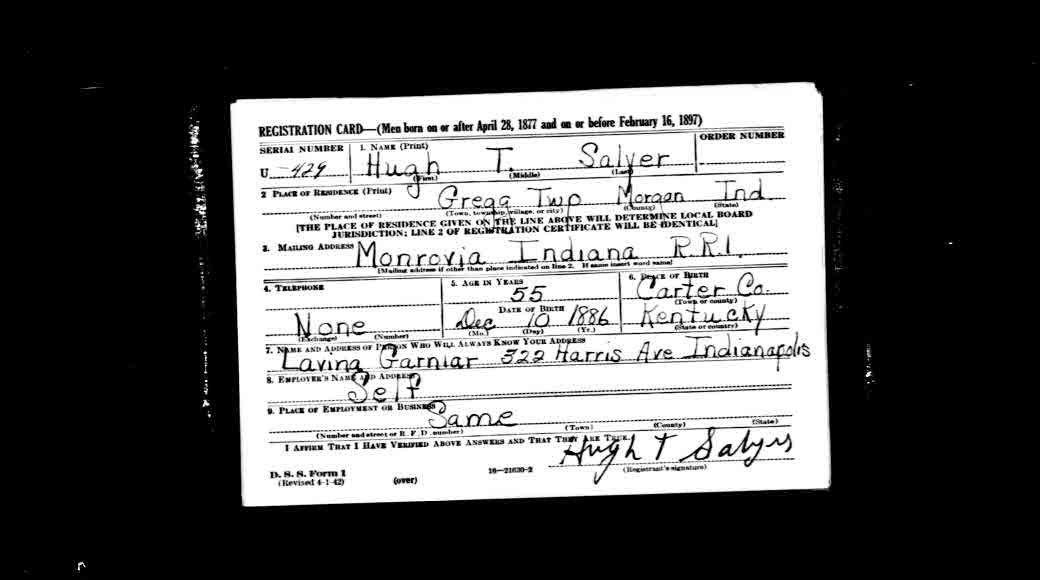 REGISTRATION CARD—(Men born on or after April 28, 1877 and on or before February 16, 1897)
SERIAL NUMBER 1. NAME (Print) ORDER NUMBER
U -429 Hugh T. Salyer
(First) (Middle) (Last)
2 PLACE OF RESIDENCE (Print)
Gregg Twp Morgan Ind
(Number and street) (Town, township, village, or city) (County) (State)
[THE PLACE OF RESIDENCE GIVEN ON THE LINE ABOVE WILL DETERMINE LOCAL BOARD
JURISDICTION; LINE 2 OF REGISTRATION CERTIFICATE WILL BE IDENTICAL]
3. MAILING ADDRESS
Monrovia Indiana R.R.1.
[Mailing address if other than place indicated on line 2. If same insert word same]
4. TELEPHONE 5. AGE IN YEARS 6. PLACE OF BIRTH
55 Carter Co.
DATE OF BIRTH (Town or county)
None Dec 10 1886 Kentucky
(Exchange) (Number) (Mo.) (Day) (Yr.) (State or country)
7. NAME AND ADDRESS OF PERSON WHO WILL ALWAYS KNOW YOUR ADDRESS
Lavina Garniar 322 Harris Ave Indianapolis
8. EMPLOYER'S NAME AND ADDRESS
Self
9. PLACE OF EMPLOYMENT OR BUSINESS
Same
(Number and street or R. F. D. number) (Town) (County) (State)
I AFFIRM THAT I HAVE VERIFIED ABOVE ANSWERS AND THAT THEY ARE TRUE.
Hugh T Salyers
D. S. S. Form 1 16—21630-2 (Registrant's signature)
(Revised 4-1-42) (over)